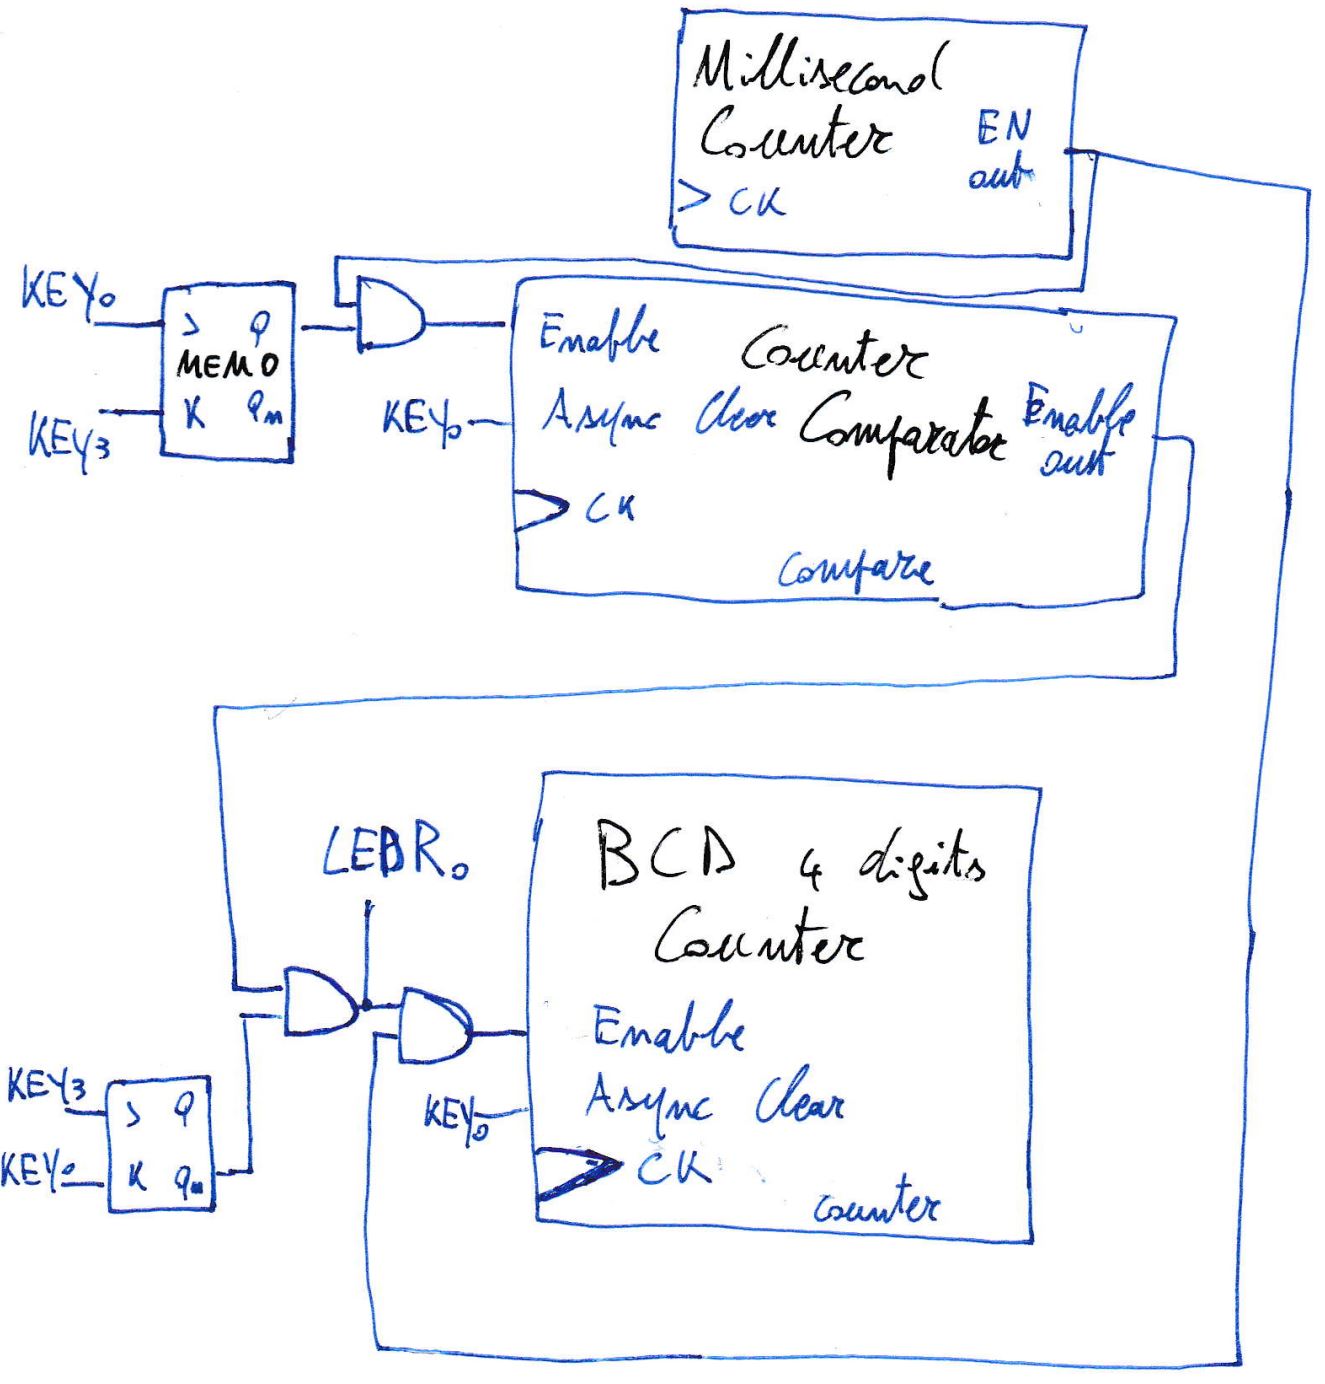 Millisecond
Counter
EN
out
> CK
KEY0
J Q
MEMO
K Qn
KEY3
Enable
Counter
Async Clear
Comparator
Enable
out
KEY0
CK
Compare
LEDR0
BCD 4 digits
Counter
Enable
Async Clear
KEY0
CK
counter
KEY3
J Q
KEY0
K Qn